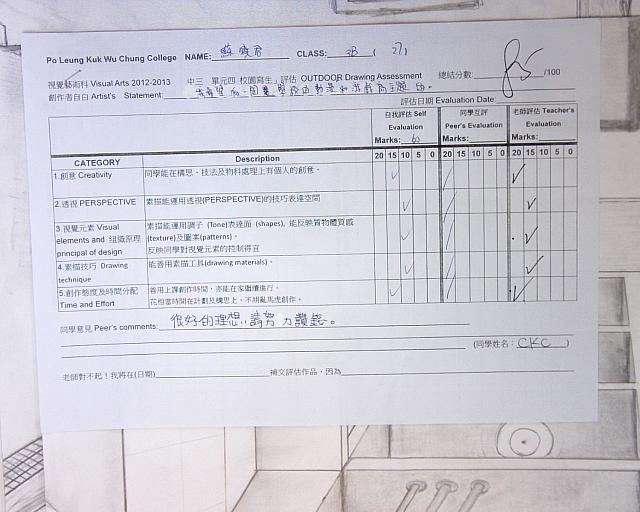 Po Leung Kuk Wu Chung College NAME: 蘇曉君 CLASS: 3B ( 27 )
視覺藝術科 Visual Arts 2012-2013 中三 單元四 校園寫生」評估 OUTDOOR Drawing Assessment 總結分數: 85 /100
創作者自白 Artist's Statement:
評估日期 Evaluation Date:
自我評估 Self Evaluation 同學互評 Peer's Evaluation 老師評估 Teacher's Evaluation
Marks: 60 Marks: Marks:
CATEGORY Description 20 15 10 5 0 20 15 10 5 0 20 15 10 5 0
1.創意 Creativity 同學能在構思、技法及物料處理上有個人的創意。
2.透視 PERSPECTIVE 素描能運用透視(PERSPECTIVE)的技巧表達空間
3.視覺元素 Visual elements and 組織原理 principal of design 素描能運用調子 (Tone)表達面 (shapes), 能反映質物體質感 (texture)及圖案(patterns)。
反映同學對視覺元素的控制得宜
4.素描技巧 Drawing technique 能善用素描工具(drawing materials)。
5.創作態度及時間分配 Time and Effort 善用上課創作時間，亦能在家繼續進行。
花相當時間在計劃及構思上，不胡亂馬虎創作。
同學意見 Peer's comments: 很好的理想，請努力
(同學姓名: CKC )
老師對不起！我將在(日期) 補交評估作品，因為